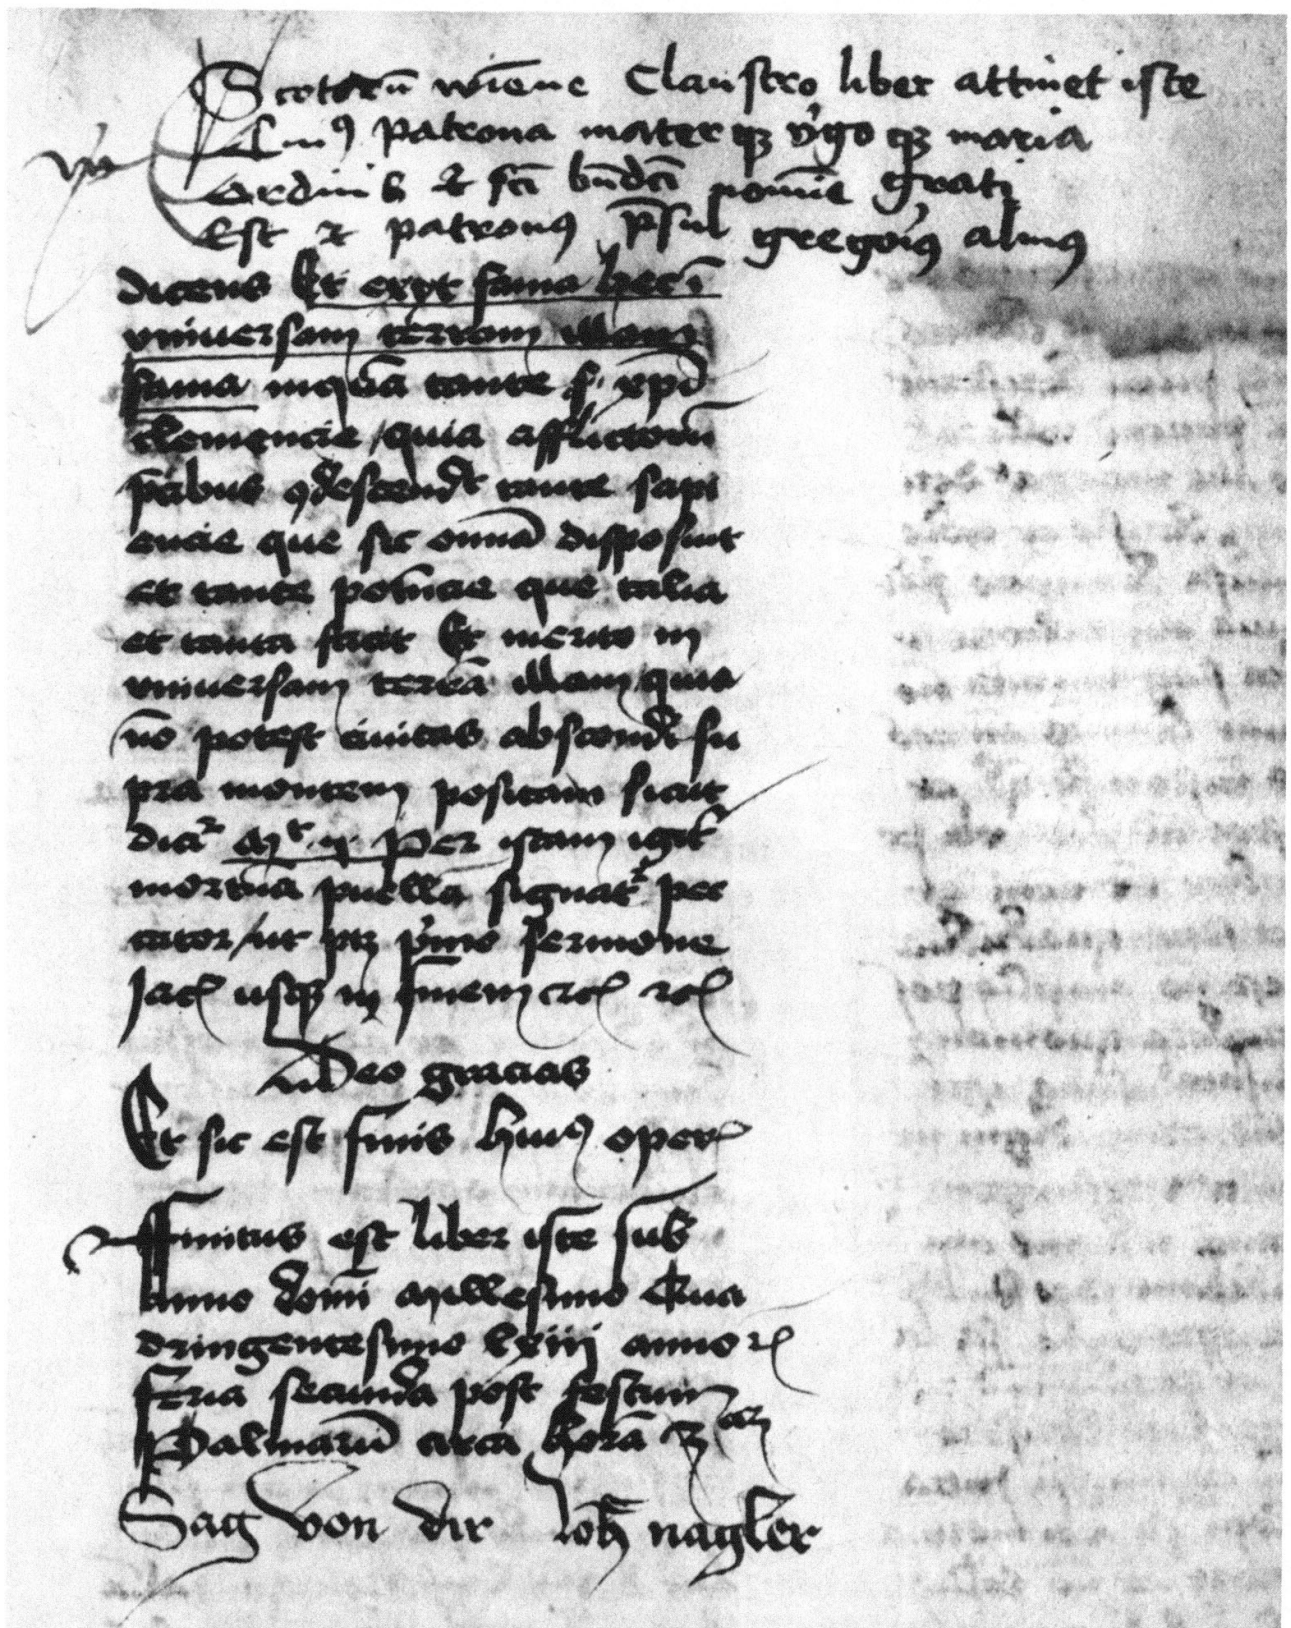 Scotorū wiēne Claustro liber attinet iste
Cuiꝰ patrona mater qꝫ v̓go qꝫ maria
Ordinis et sc̄i bn̄dc̄i nomīe grati
Est et patronꝰ p̄sul gregoiꝰ almꝰ
dicens Et exijt fama hec ī
vniuersam terram illam
fama inquā tante s. xpī
clemencie / quia afflictorū
p̄cibus ꝯdescendit tante sapi
encie que sic omnia disposuit
et tante potn̄cie que talia
et tanta facit Et merito in
vniuersam terrā illam quia
nō potest ciuitas abscondi su
pra montem positam sicut
dicit᷑ Mt. Per istam igit᷑
mortuā puellā signat᷑ pec
cator / ut ptꝫ p̓mo sermone
usqꝫ in finem etc̄ etc̄
Deo gracias
Et sic est finis huiꝰ oper
Finitus est liber iste sub
Anno domī Millesimo Qua
dringentesimo lxiiij annoꝝ
feria secunda post festum
Palmarū circa horā
Sag von dir Joh̄ nagler